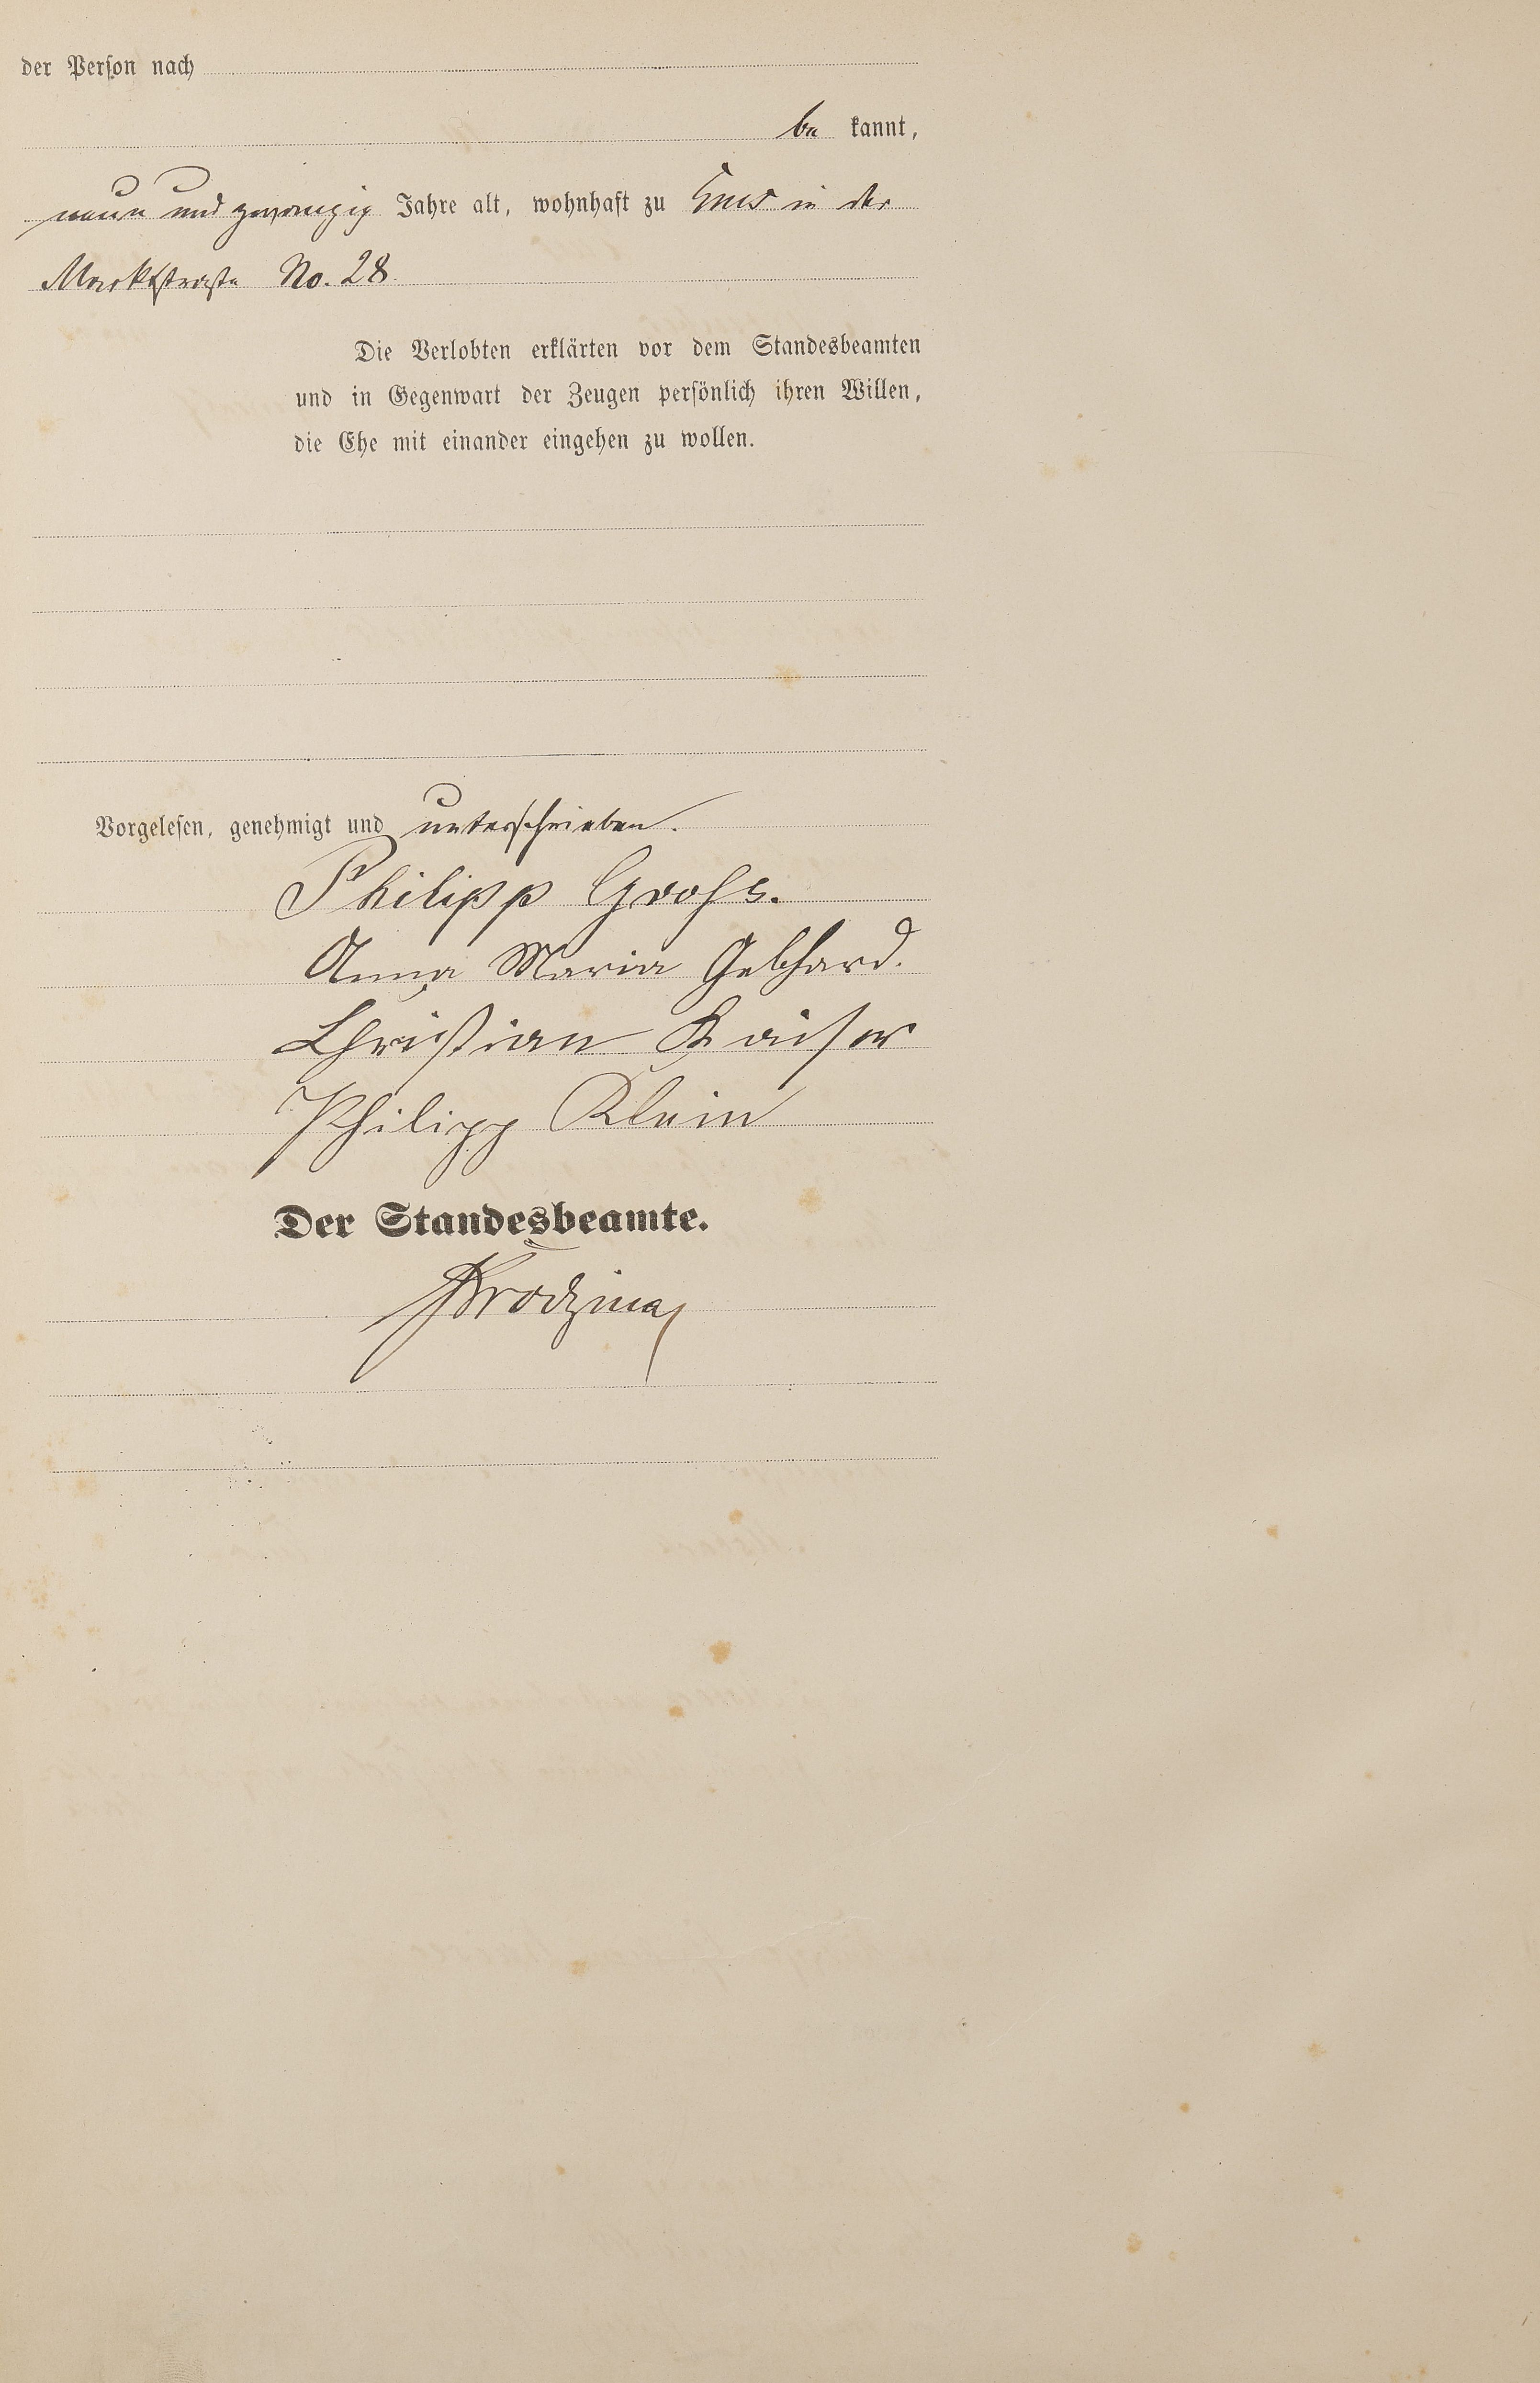 der Person nach
be kannt,
neun und zwanzig Jahre alt, wohnhaft zu Ems in der
Marktstraße No. 28
Die Verlobten erklärten vor dem Standesbeamten
und in Gegenwart der Zeugen persönlich ihren Willen,
die Ehe mit einander eingehen zu wollen.
Vorgelesen, genehmigt und unterschrieben.
Philipp Groß.
Anna Maria Gebhard.
Christian Kaiser
Philipp Klein
Der Standesbeamte.